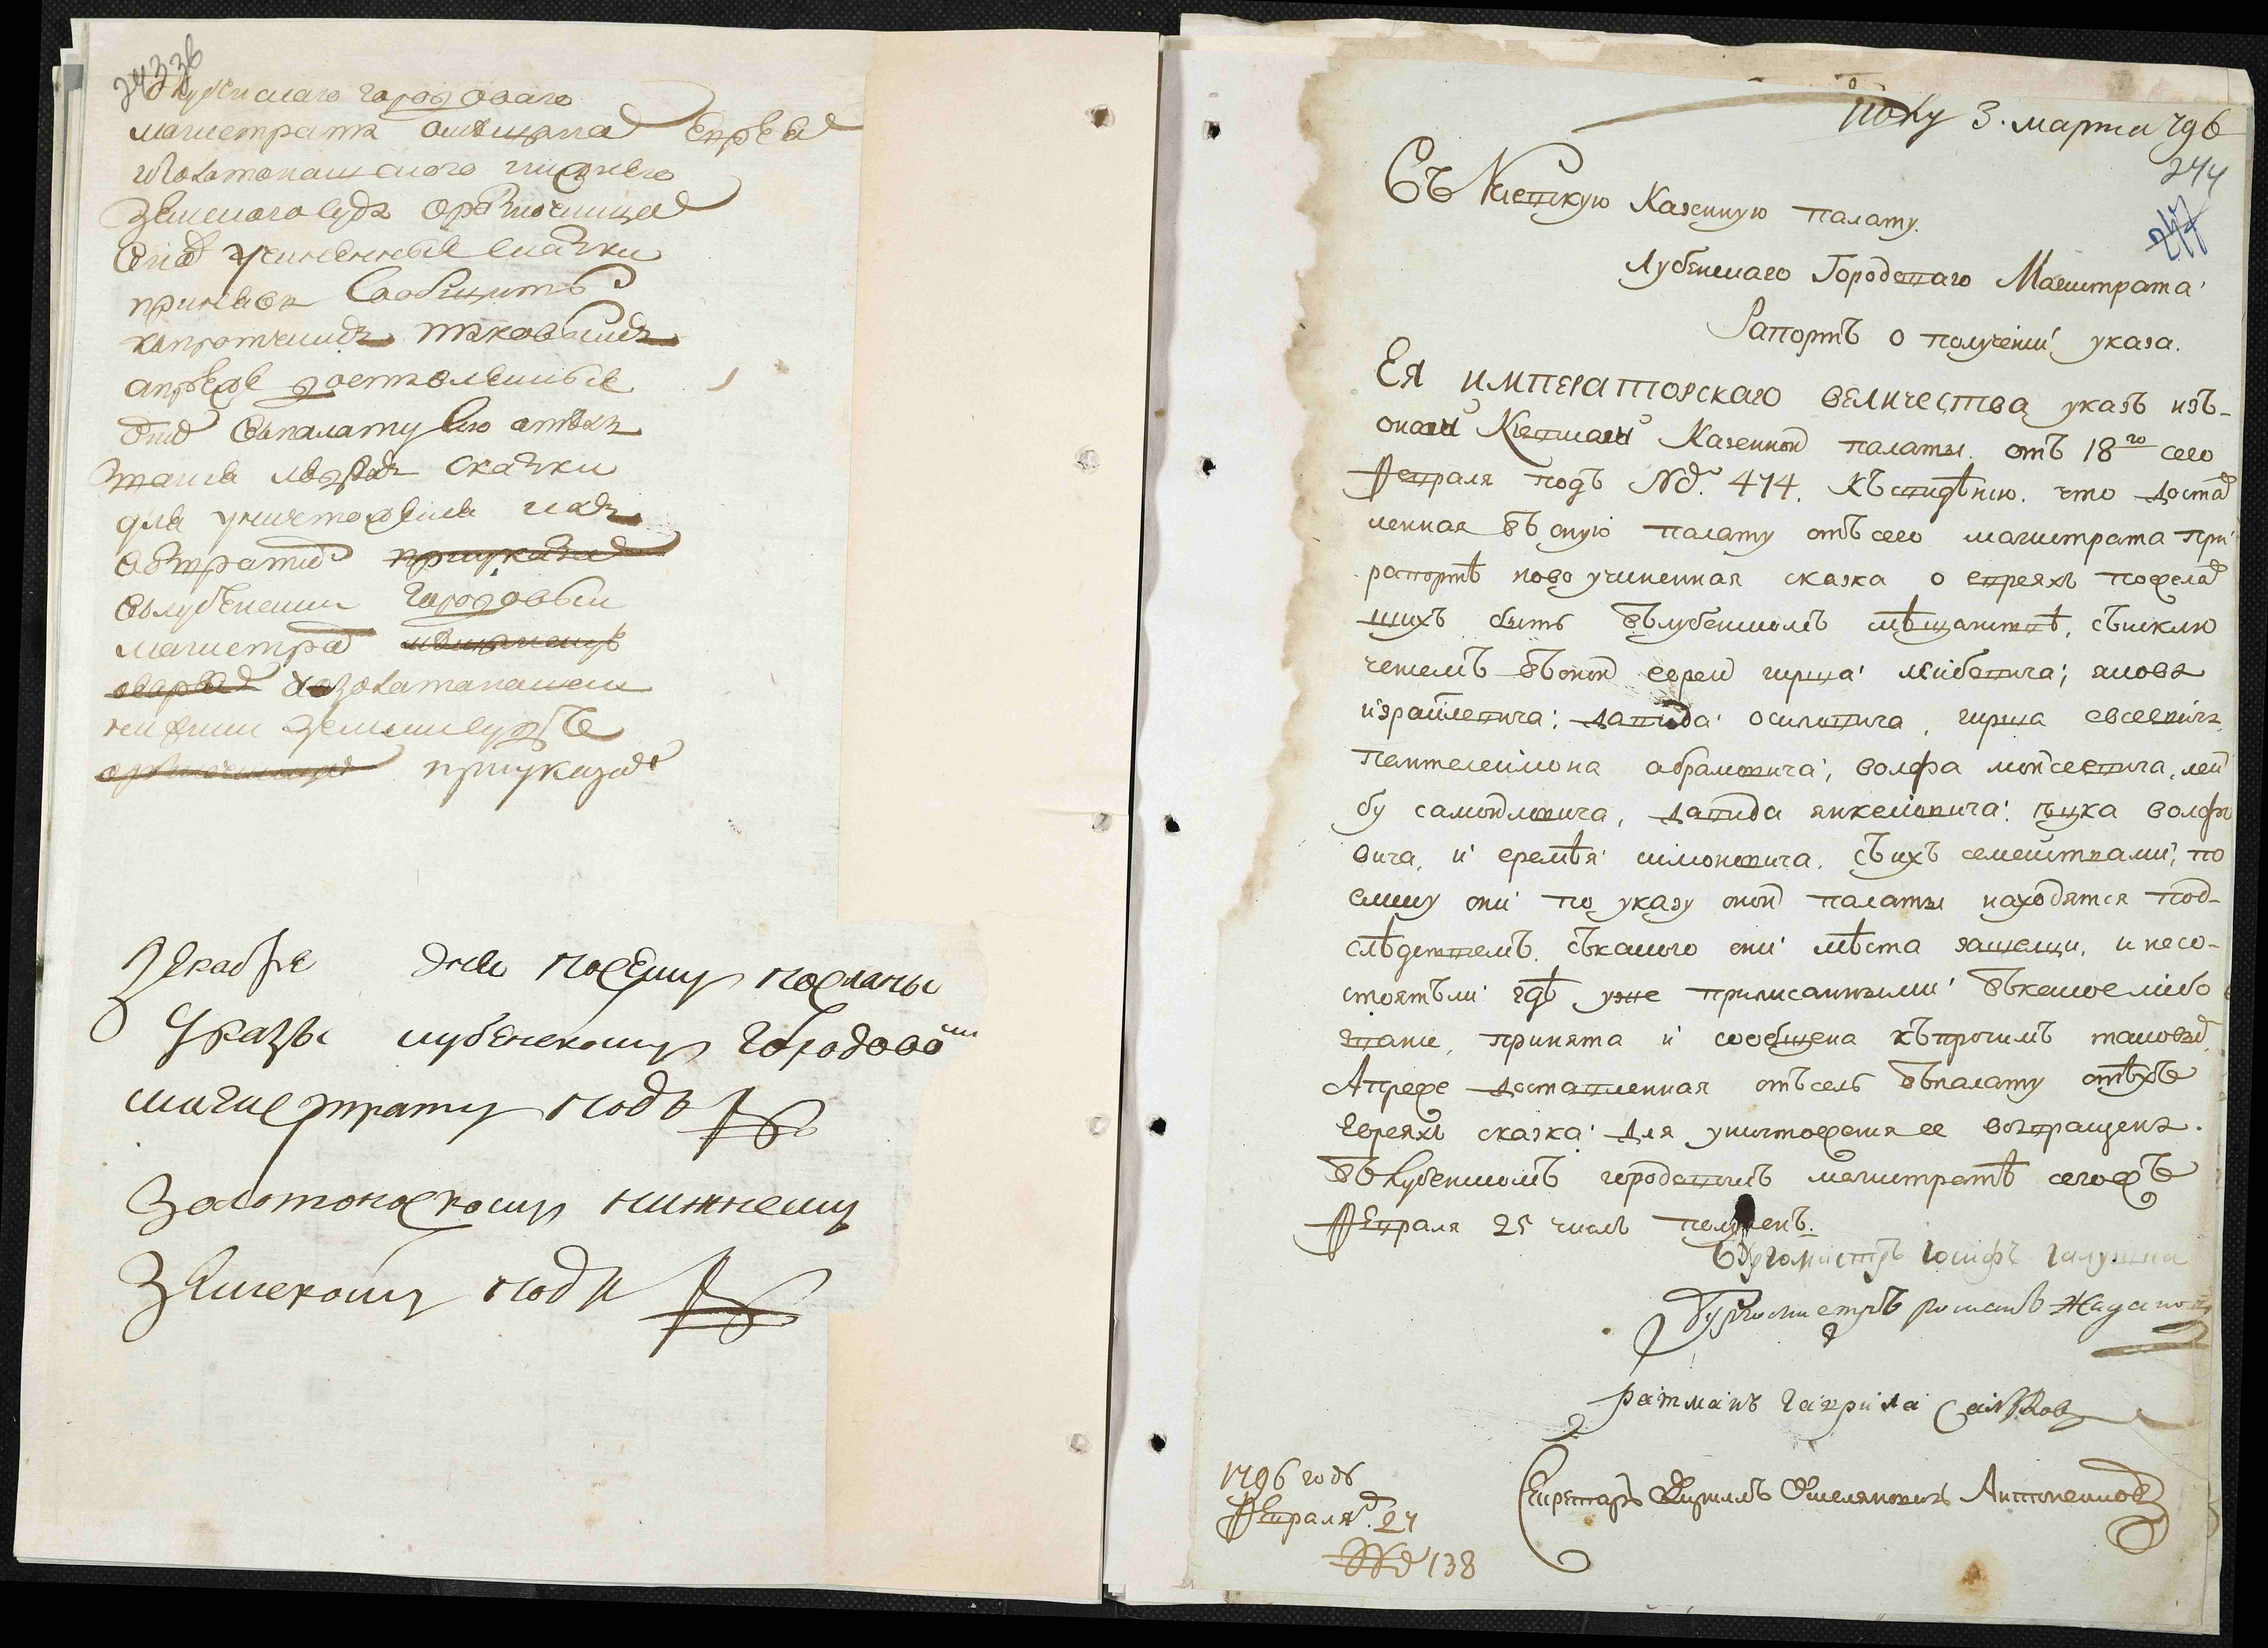 243 зв
Лубенскаго городоваго
магистрата о мещанах Евреях
и Золотоношского нижнего
земского суда о разночинцах
вновь учиненные сказки
приняв сообщить
к протчимъ таковымъ
а прежде доставленные
в палату о техъ
звания людях сказки
для уничтожения их
возвратить при указах
въ лубенский городовый
магистрат
а в золотоношский
нижний земский судъ
при указах
Декабря дня по сему посланы
Указы лубенскому городово
магистрату подъ №
Золотоношскому нижнему
Земскому подъ №
Полу 3. марта 796
244
Въ Киевскую Казенную палату.
Лубенскаго Городоваго Магистрата
Рапортъ о полученіи указа.
Ея императорскаго величества указъ изъ-
оной Киевской Казенной палаты. отъ 18го сего
февраля подъ №. 474. къ сведѣнию. что достав
ленная въ оную палату отъ сего магистрата при
рапортѣ ново учиненная сказка о евреяхъ пожелав
шихъ быть въ лубенскомъ мѣщанствѣ, съ исклю
чениемъ въ оной евреи гирша лейбовича; якова
израйлевича; давида осиповича, гирша евсеевича,
пантелеимона абрамовича; волфа мойсеевича, лей
бу самойловича, давида янкелиовича: ицка волфо
вича, и еремѣя симоновича. съ ихъ семействами, по
елику они по указу оной палаты находятся под-
слѣдствиемъ. съ какого они мѣста зашедши, и несо-
стоятъли гдѣ уже приписанными въ какое либо
звание, принята и сообщена къ прочимъ таковым,
А преже доставленная отъ сель въ палату о тѣхъ
Евреяхъ сказка для уничтожения ее возвращена.
въ Лубенскомъ городовомъ магистратѣ сегожъ
февраля 25 числа полученъ.
Бургомистръ Іосифъ Галушка
Бургомистръ романъ Жадано
ратманъ гаврила
Секретаръ Кирилъ Омеляновичъ Антоненков
1796 годъ
Февраля 27
№ 138